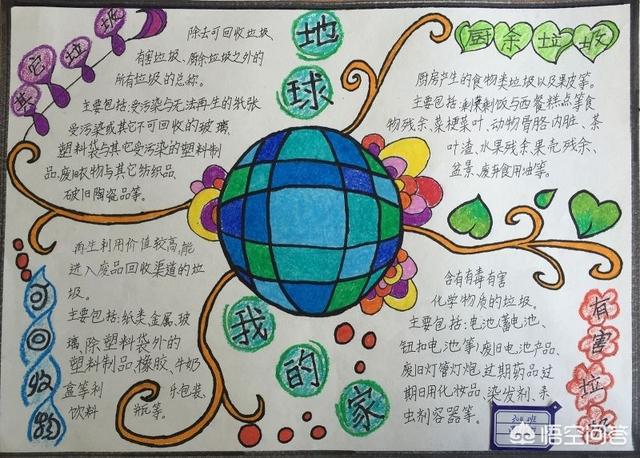 其它垃圾
除去可回收垃圾、
有害垃圾、厨余垃圾之外的
所有垃圾的总称。
主要包括:受污染与无法再生的纸张
受污染或其它不可回收的玻璃,
塑料袋与其它受污染的塑料制
品、废旧衣物与其它纺织品、
破旧陶瓷品等。
地球
我的家
厨余垃圾
厨房产生的食物类垃圾以及果皮等。
主要包括:剩菜剩饭与西餐糕点等食
物残余、菜梗菜叶、动物骨骼内脏、茶
叶渣、水果残余、果壳残余、
盆景、废弃食用油等。
可回收物
再生利用价值较高,能
进入废品回收渠道的垃
圾。
主要包括:纸类、金属、玻
璃、除塑料袋外的
塑料制品、橡胶、牛奶
盒等利乐包装、
饮料瓶等。
有害垃圾
含有有毒有害
化学物质的垃圾。
主要包括:电池(蓄电池、
钮扣电池等)废旧电池产品、
废旧灯管灯泡、过期药品过
期日用化妆品、染发剂、杀
虫剂容器等。
悟空问答